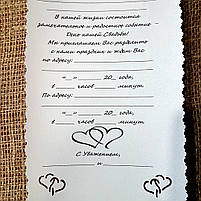 В нашей жизни состоится
замечательное и радостное событие –
День нашей Свадьбы!
Мы приглашаем Вас разделить
с нами праздник и ждем Вас
по адресу: ________________
«__» ________ 20__ года,
в ____ часов ____ минут
По адресу: ________________
«__» ________ 20__ года,
в ____ часов ____ минут
С Уважением,
________ и ________